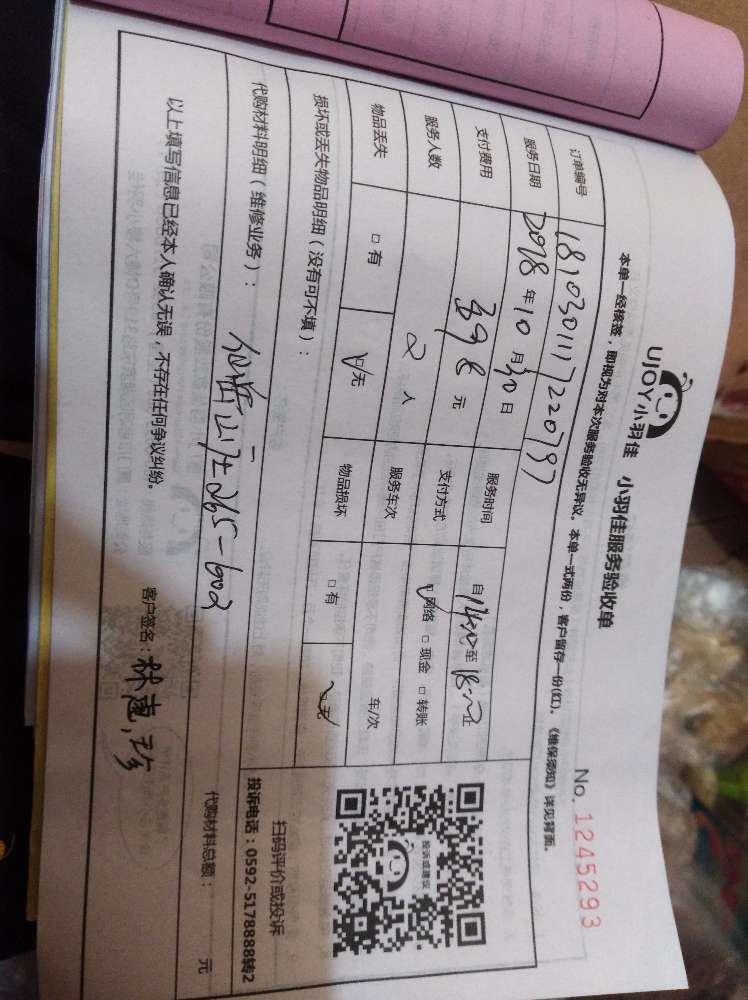 UJOY小羽佳 小羽佳服务验收单
No. 1245293
本单一经核签，即视为对本次服务验收无异议。本单一式两份，客户留存一份(红)。《维保须知》详见背面。
订单编号 1810301117220797
服务日期 2018年10月30日 服务时间 自14:00至18:00止
支付费用 398元 支付方式 ☑网络 □现金 □转账
服务人数 2人 服务车次 车/次
物品丢失 □有 ☑无 物品损坏 □有 ☑无
损坏或丢失物品明细（没有可不填）：
扫码评价或投诉
投诉电话：0592-5178888转2
投诉或建议
代购材料明细（维修业务）：
仙岳山庄265-602
代购材料总额： 元
以上填写信息已经本人确认无误，不存在任何争议纠纷。
客户签名：林惠珍